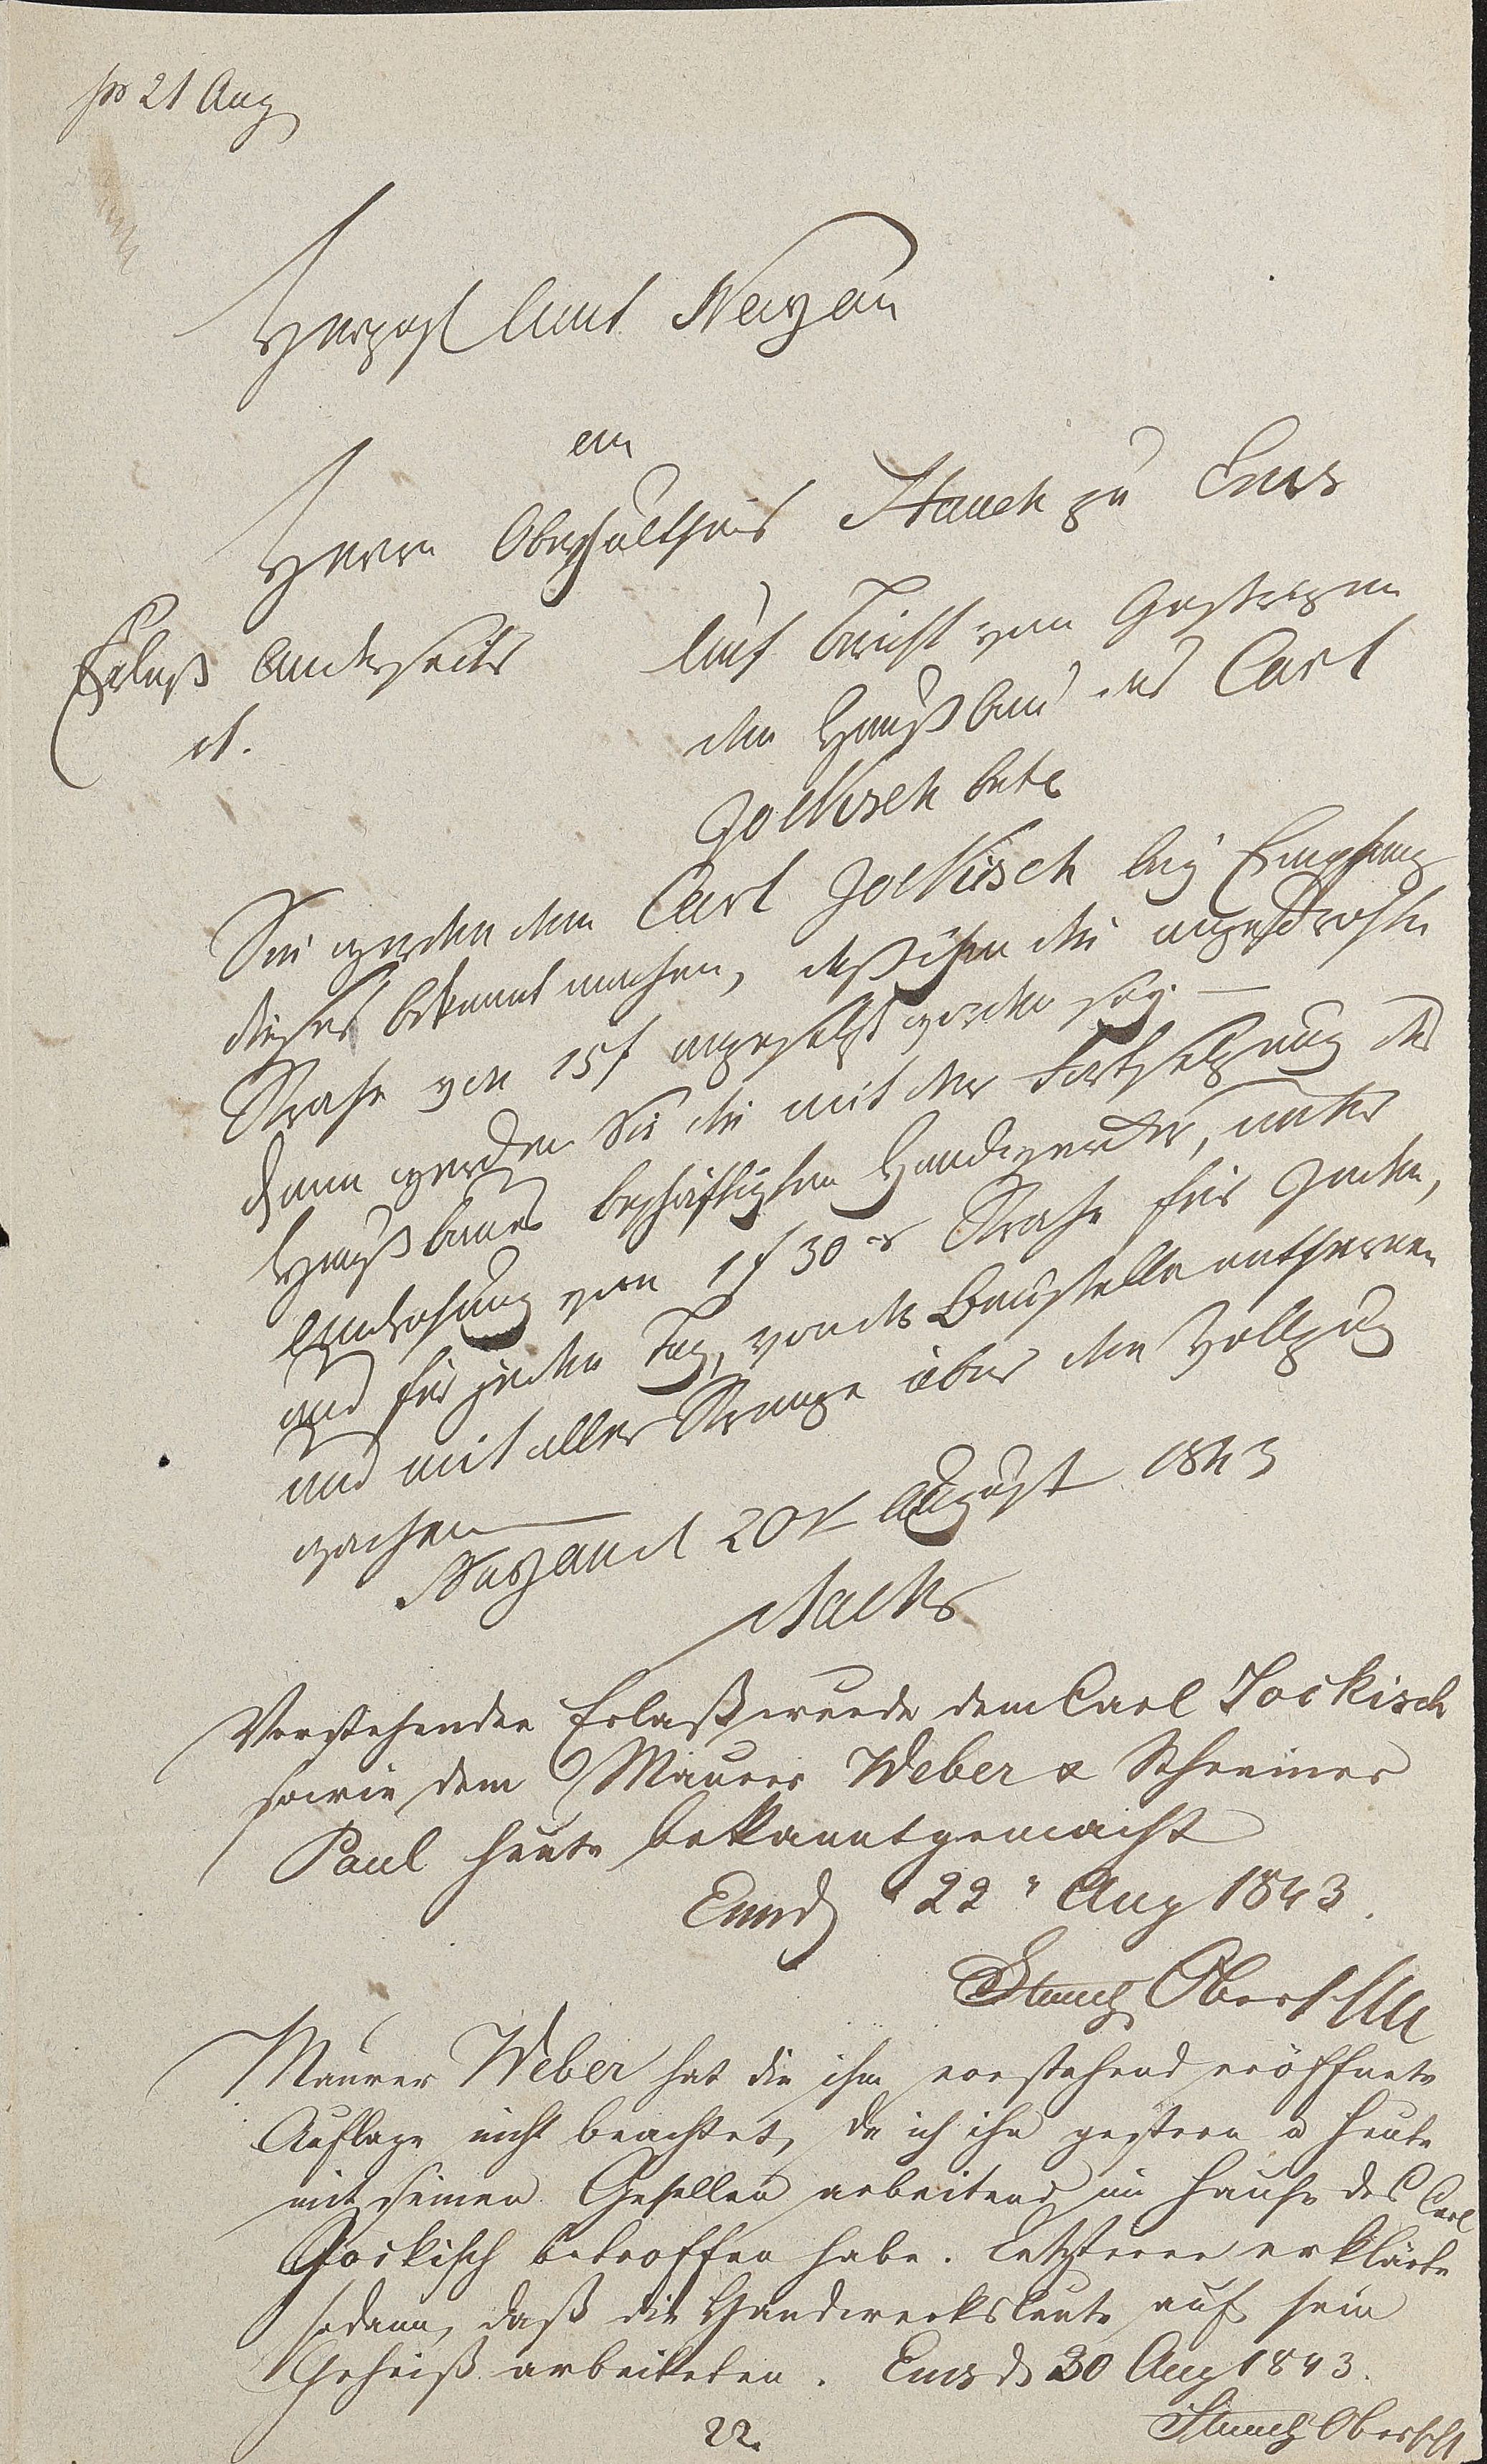 pr 21 Aug
Herzogl Amt Nassau
an
Herrn Oberschultheis Stauch zu Ems
Erlaß Amtsseits
d.
Auf Bericht vom Gestrigen
den Hausbau des Carl
Jockisch betr
Sie werden dem Carl Jockisch bey Empfang
dieses bekannt machen, daß ihm die angedrohte
Strafe von 15 f angesetzt worden sey. —
Dann werden Sie die mit der Fortsetzung des
Hausbaues beschäftigten Handwerker, unter
Androhung von 1 f 30 xr Strafe für Jeden,
und für jeden Tag, von der Baustelle entfernen
und mit aller Strenge über den Vollzug
wachen
Nassau d 20t August 1843
Vorstehender Erlaß wurde dem Carl Jockisch
sowie dem Maurer Weber & Schreiner
Paul heute bekanntgemacht
Ems d 22" Aug 1843.
Stauch Oberschlth
Maurer Weber hat die ihm vorstehend eröffnete
Auflage nicht beachtet, da ich ihn gestern u heute
mit seinen Gesellen arbeitend im Hause des Carl
Jockisch betroffen habe. Letzterer erklärte
sodann, daß die Handwerksleute auf sein
Geheiß arbeiteten. Ems d 30 Aug 1843.
Stauch Oberschlt
22.